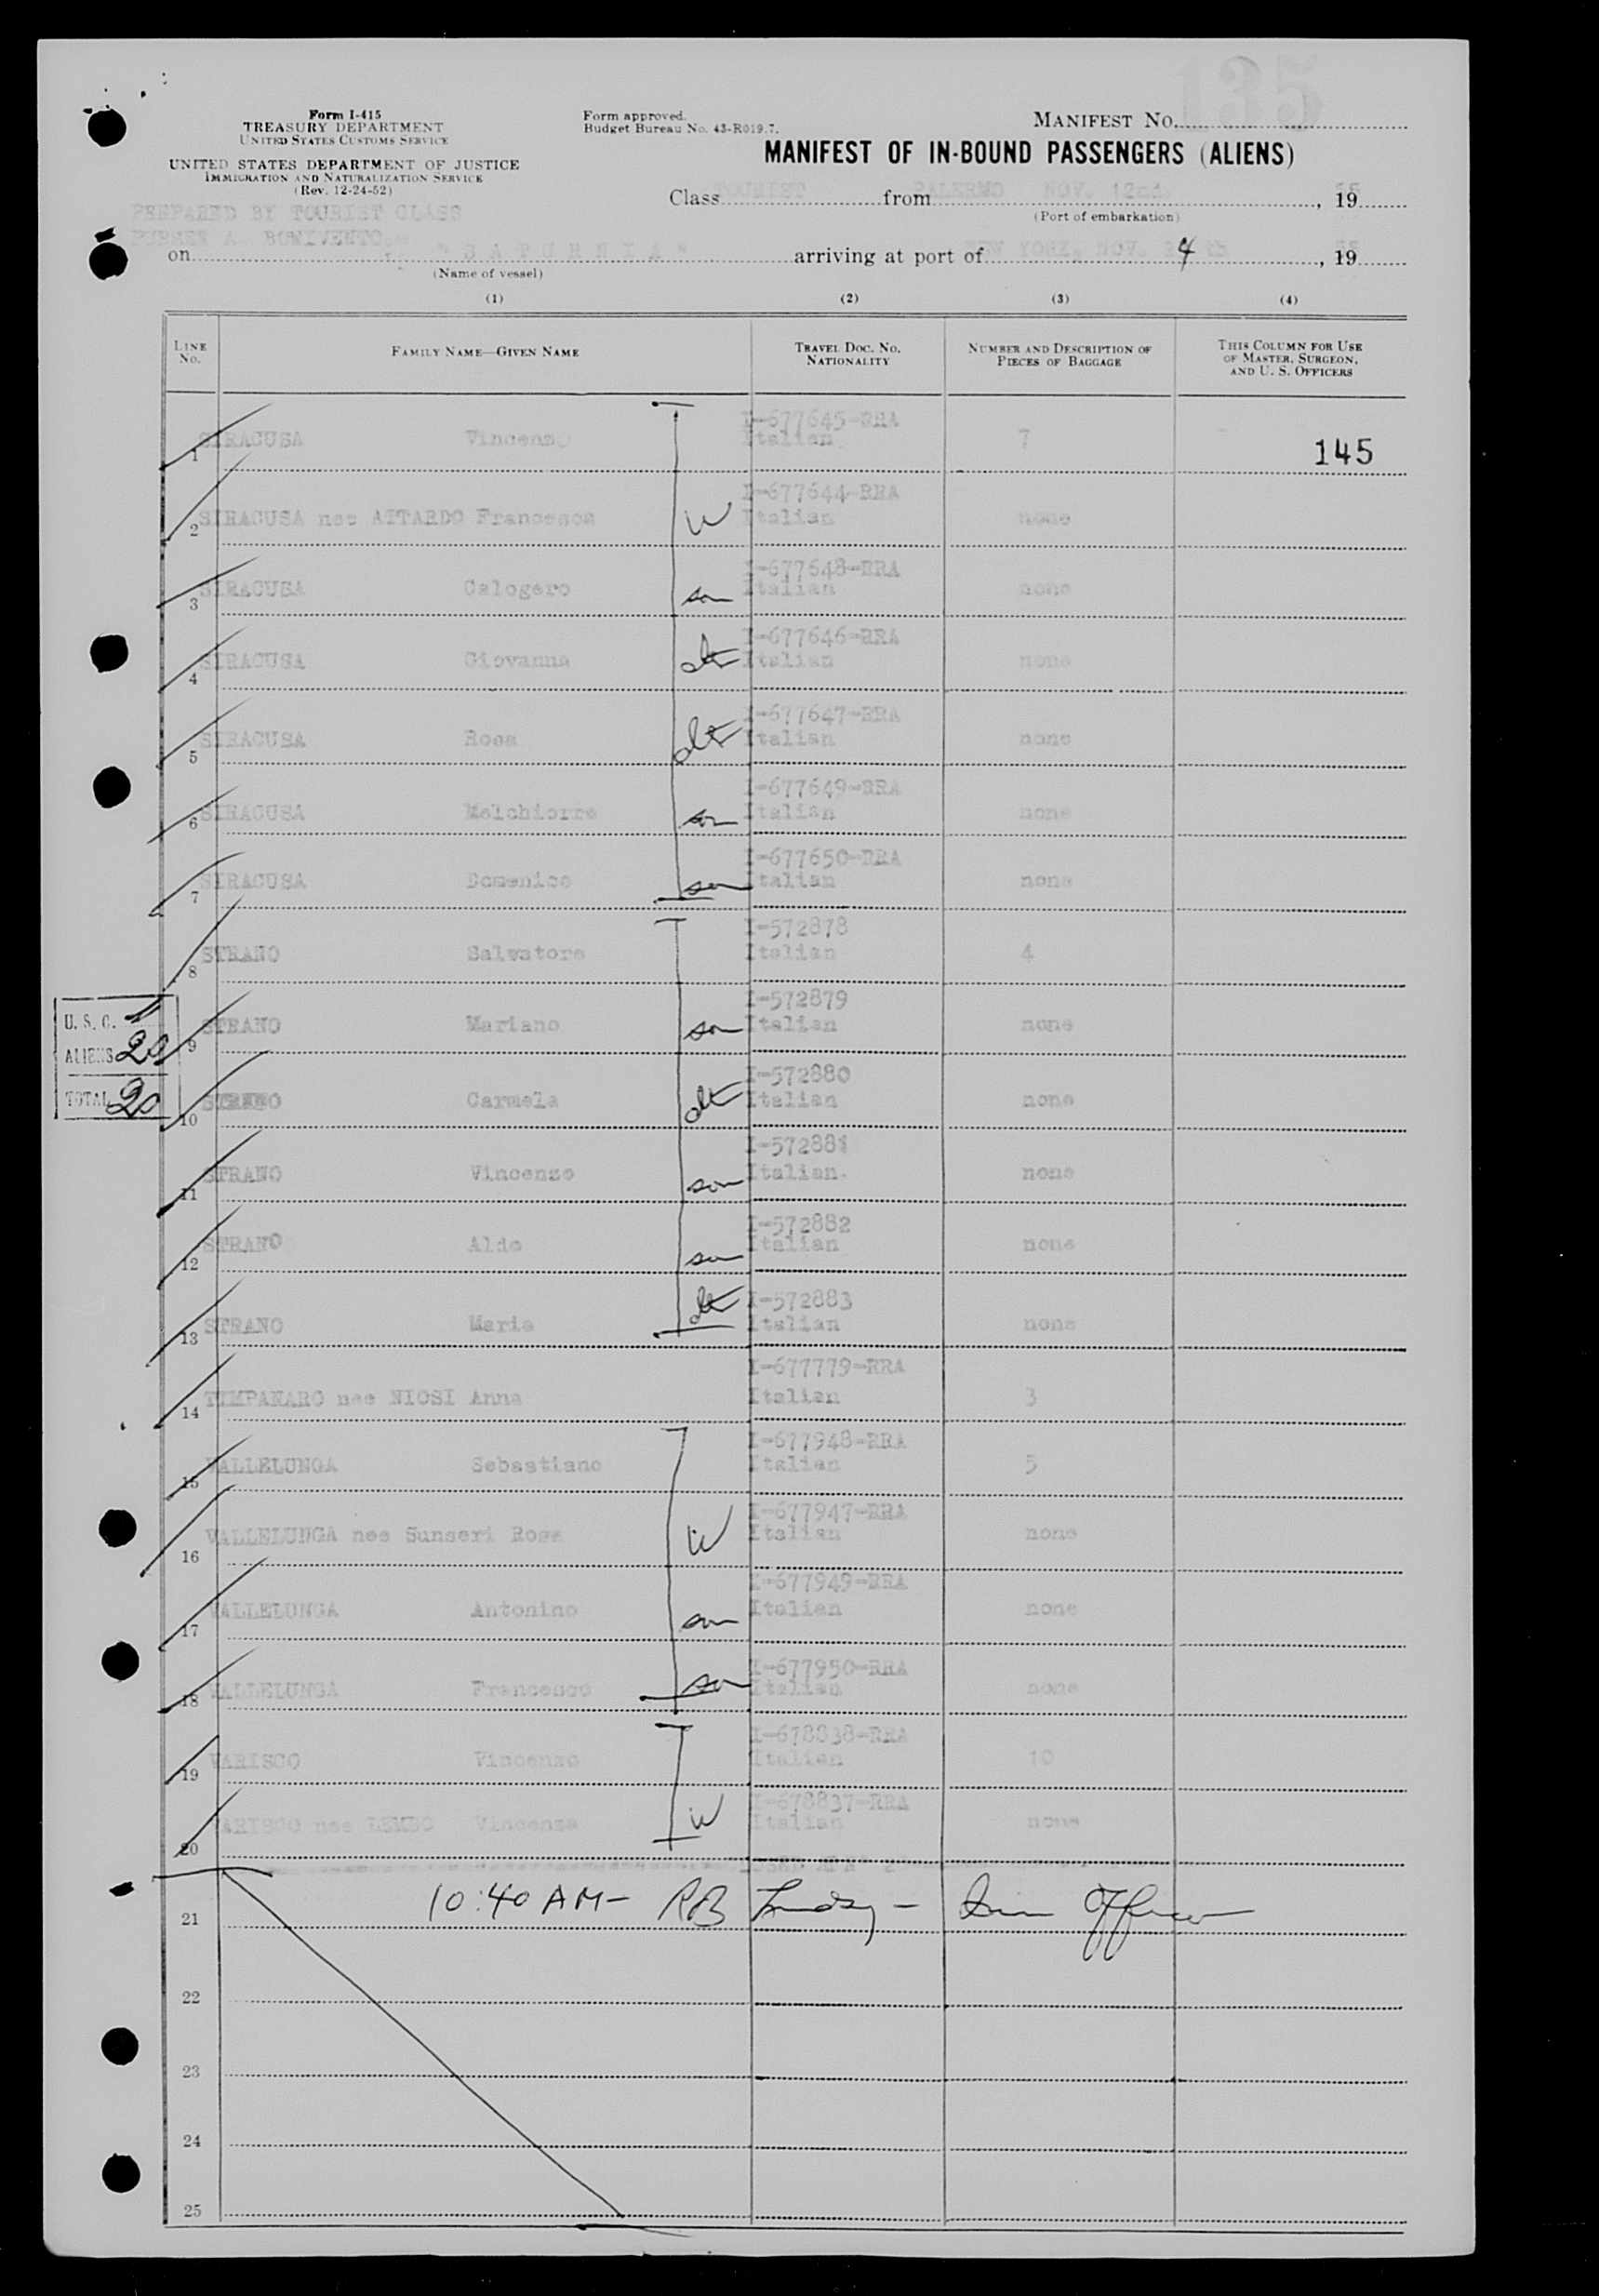 135
Form I-415
TREASURY DEPARTMENT
UNITED STATES CUSTOMS SERVICE
UNITED STATES DEPARTMENT OF JUSTICE
IMMIGRATION AND NATURALIZATION SERVICE
(Rev. 12-24-52)
Form approved.
Budget Bureau No. 43-R019.7.
MANIFEST No.
MANIFEST OF IN-BOUND PASSENGERS (ALIENS)
Class TOURIST from PALERMO NOV. 12nd. , 19 55
(Port of embarkation)
PREPARED BY TOURIST CLASS
PURSER A. BONIVENTO
on "SATURNIA" arriving at port of NEW YORK, NOV. 4 , 19 55
(Name of vessel)
(1) (2) (3) (4)
LINE No. FAMILY NAME—GIVEN NAME TRAVEL DOC. NO. NATIONALITY NUMBER AND DESCRIPTION OF PIECES OF BAGGAGE THIS COLUMN FOR USE OF MASTER, SURGEON, AND U. S. OFFICERS
I-677645-RRA
1 SIRACUSA Vincenzo Italian 7 145
I-677644-RRA
2 SIRACUSA nee ATTARDO Francesca W Italian none
I-677648-RRA
3 SIRACUSA Calogero son Italian none
I-677646-RRA
4 SIRACUSA Giovanna dtr Italian none
I-677647-RRA
5 SIRACUSA Rosa dtr Italian none
I-677649-RRA
6 SIRACUSA Melchiorre son Italian none
I-677650-RRA
7 SIRACUSA Domenico son Italian none
I-572878
8 STRANO Salvatore Italian 4
I-572879
9 STRANO Mariano son Italian none
I-572880
10 STRANO Carmela dtr Italian none
I-572881
11 STRANO Vincenzo son Italian. none
I-572882
12 STRANO Aldo son Italian none
I-572883
13 STRANO Maria dtr Italian none
I-677779-RRA
14 TIMPANARO nee NIOSI Anna Italian 3
I-677948-RRA
15 VALLELUNGA Sebastiano Italian 5
I-677947-RRA
16 VALLELUNGA nee Sunseri Rosa W Italian none
I-677949-RRA
17 VALLELUNGA Antonino son Italian none
I-677950-RRA
18 VALLELUNGA Francesco son Italian none
I-678838-RRA
19 VARISCO Vincenzo Italian 10
I-678837-RRA
20 VARISCO nee LEMBO Vincenza W Italian none
U. S. C.
ALIENS 20
TOTAL 20
21 10:40 AM- RB - Imm Officer
22
23
24
25